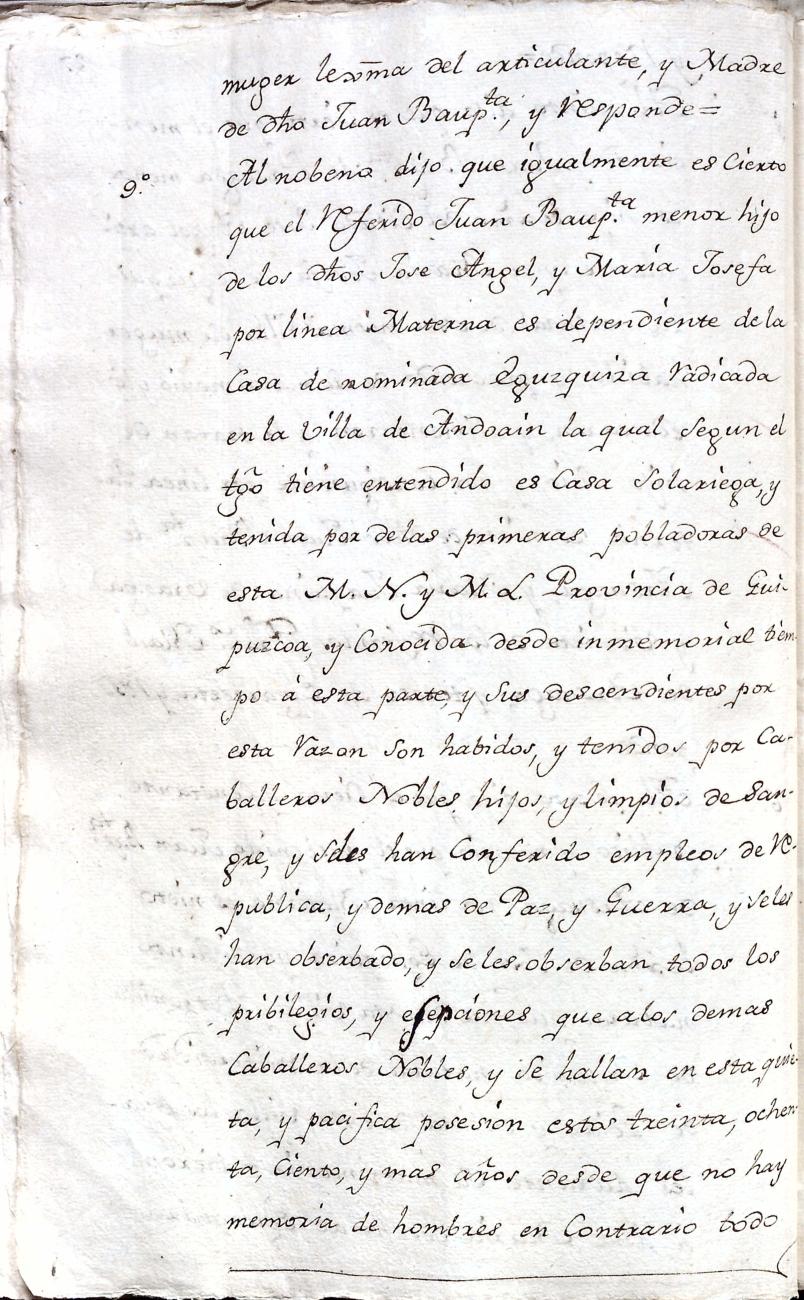 muger lexma del articulante, y Madre
de dho Juan Baup.ta, y responde=
9.º Al nobeno dijo que igualmente es Cierto
que el referido Juan Baup.ta menor hijo
de los dhos Jose Angel, y Maria Josefa
por linea Materna es dependiente de la
Casa de nominada Eguzquiza radicada
en la Villa de Andoain la qual segun el
tgo tiene entendido es Casa Solariega, y
tenida por de las primeras pobladoras de
esta M. N. y M. L. Provincia de Gui-
puzcoa, y Conocida desde inmemorial tiem-
po á esta parte, y sus descendientes por
esta razon son habidos, y tenidos por Ca-
balleros Nobles hijos, y limpios de San-
gre, y seles han Conferido empleos de re-
publica, y demas de Paz, y Guerra, y seles
han obserbado, y se les obserban todos los
pribilegios, y esepciones que a los demas
Caballeros Nobles, y se hallan en esta quie-
ta, y pacifica posesion estos treinta, ochen-
ta, Ciento, y mas años desde que no hay
memoria de hombres en Contrario todo